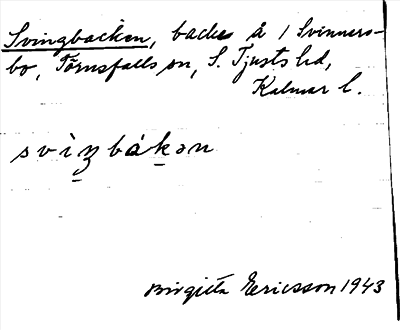 Svingbacken, backe å 1 Svinners-
bo, Törnsfalls sn, S. Tjusts hd,
Kalmar l.
svìŋbákən
Birgitta Ericsson 1943